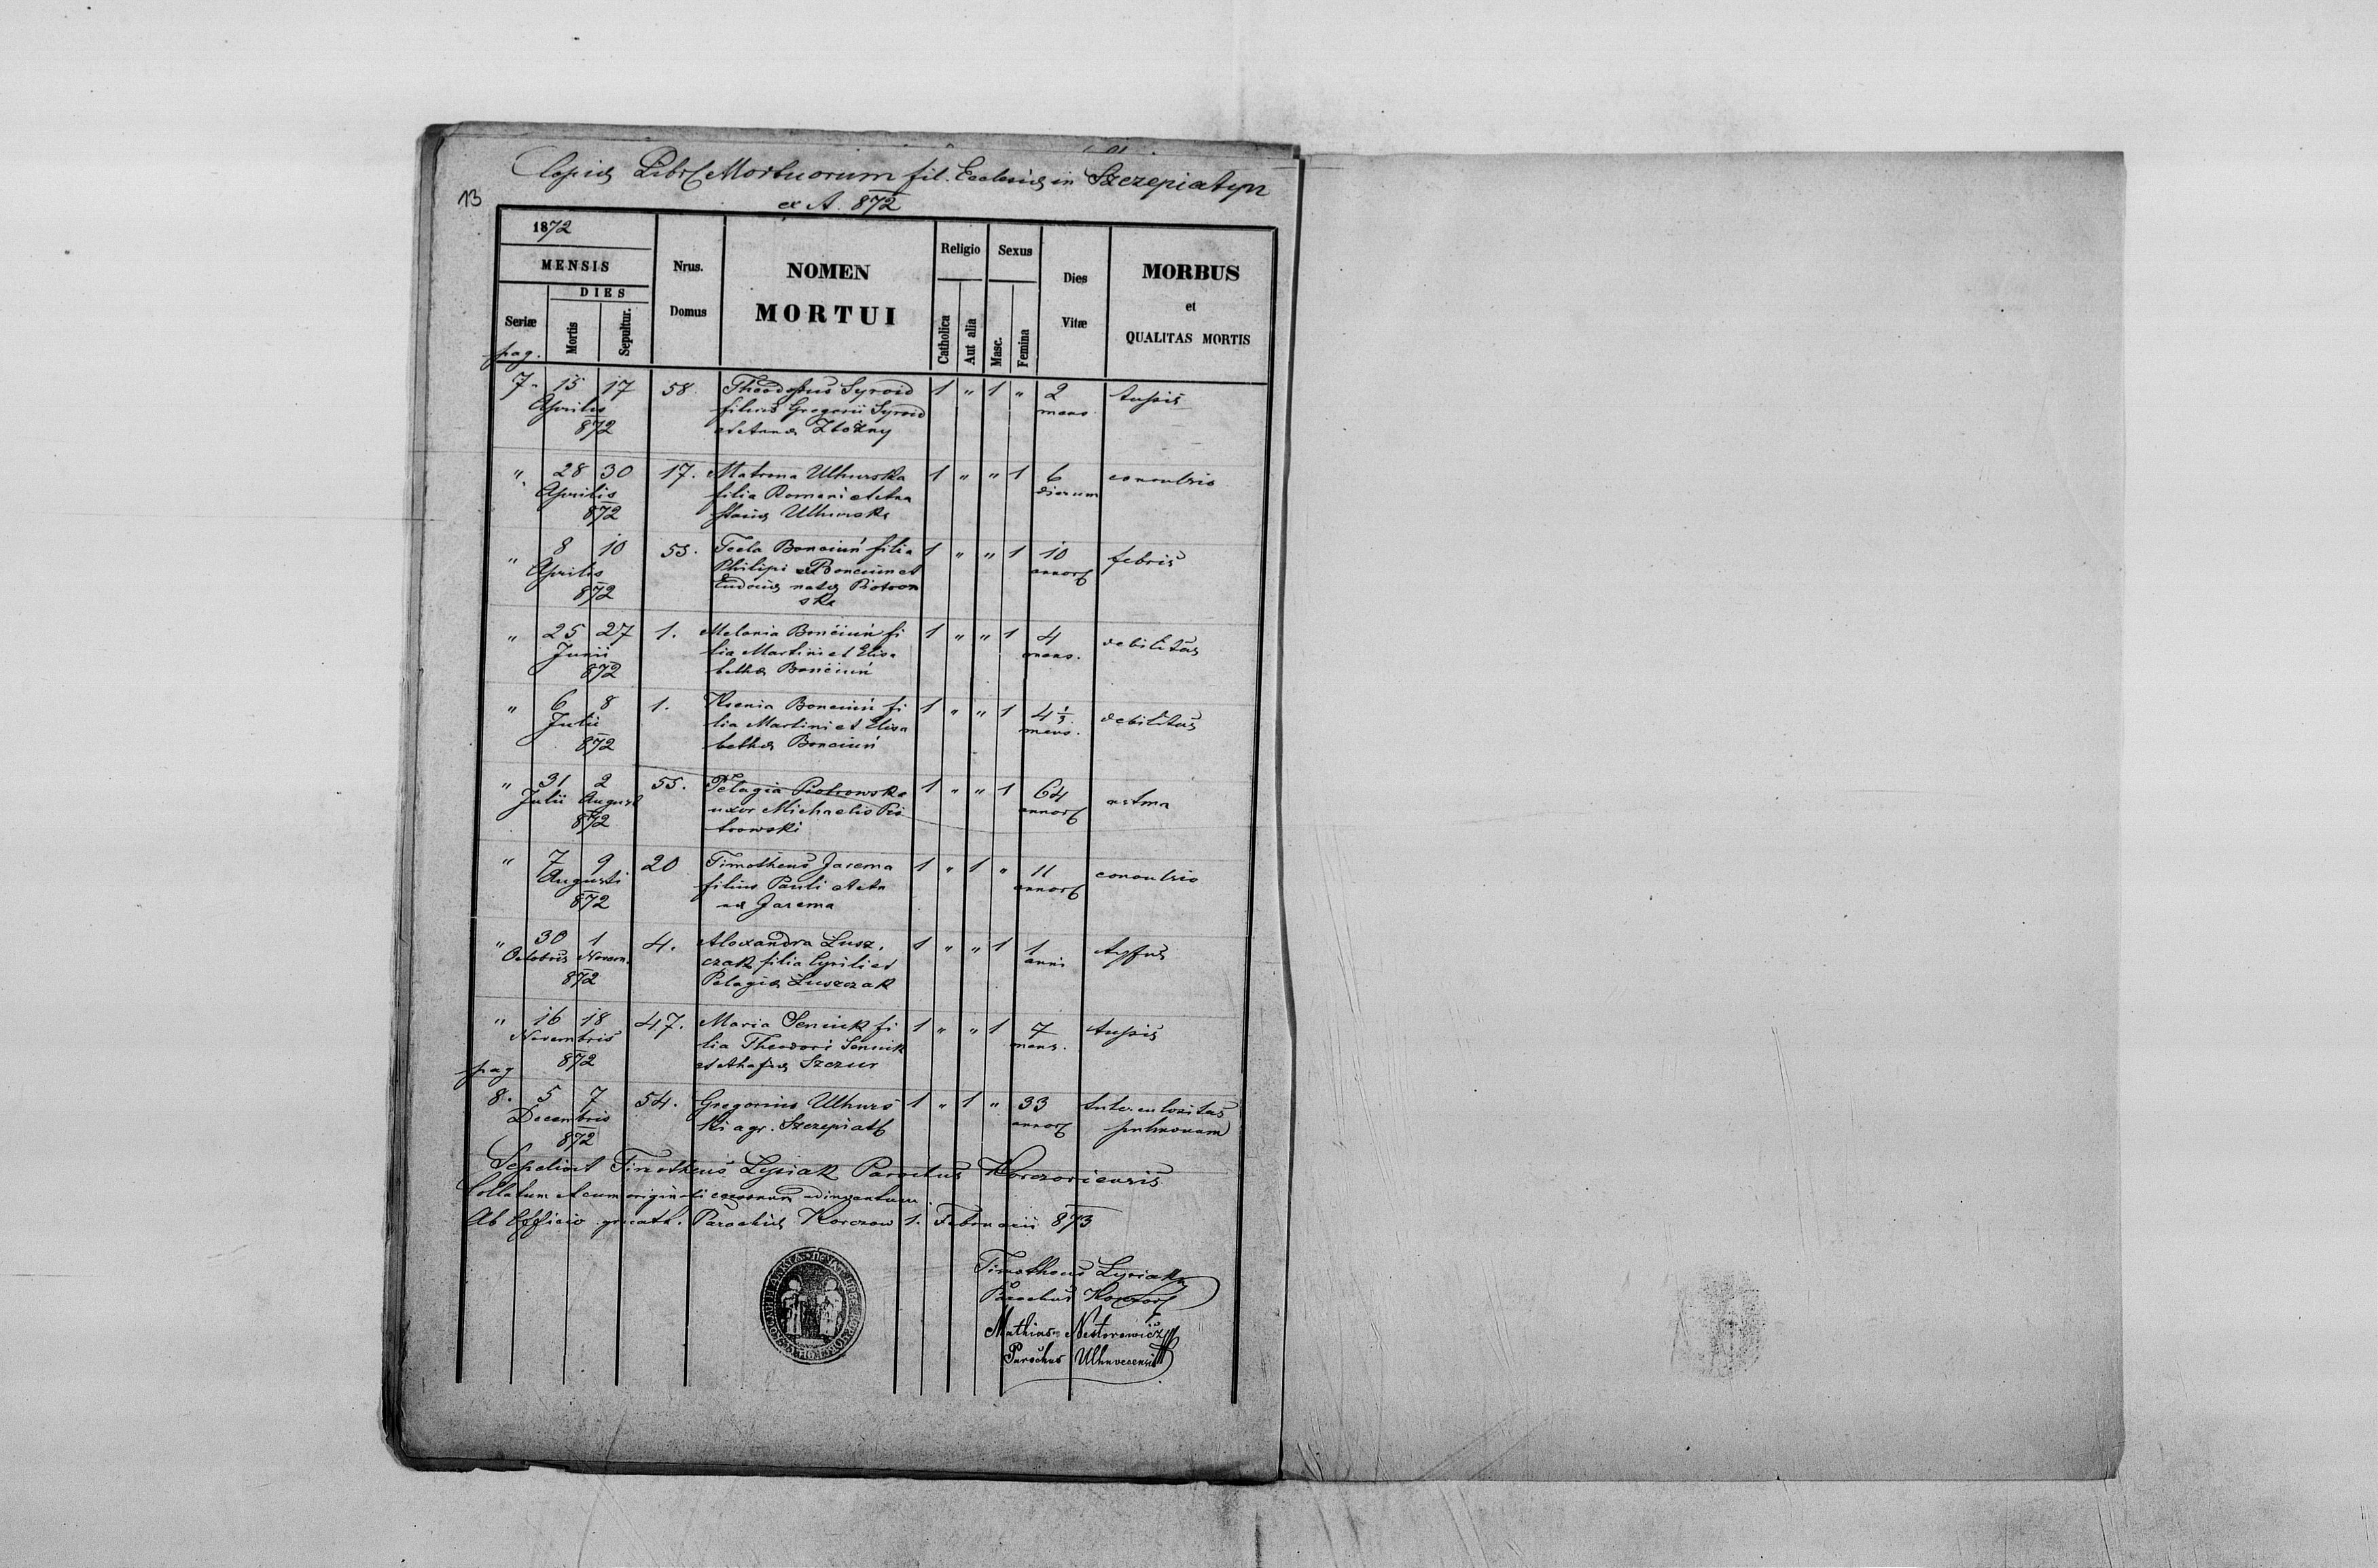 Copia Libri Mortuorum fil. Ecclesiae in Szczepiatyn
13
ex A. 872
1872
MENSIS
DIES
Seriæ
Mortis
Sepultur.
Nrus.
Domus
NOMEN
MORTUI
Religio
Catholica
Aut alia
Sexus
Masc.
Femina
Dies
Vitæ
MORBUS
et
QUALITAS MORTIS
pag.
7. 15 17 58. Theodosius Syroid 1 " 1 " 2 tussis
Aprilis filius Gregorii Syroid mens.
872 et Anna
" 28 30 17. Matrona Uhnurska 1 " " 1 6 convulsio
Aprilis filia Romani et Ana dierum
872 stasiae
" 8 10 53. Tecla Bonciun filia 1 " " 1 10 febris
Aprilis Philipi Bonciun et annor
872 Eudociae natae Piotrow
ska
" 25 27 1. Melania Bonciun fi 1 " " 1 4 debilitas
Junii lia Martini et Elisa mens.
872 bethae Bonciun
" 6 8 1. Ksenia Bonciun fi 1 " " 1 4 1/3 debilitas
Julii lia Martini et Elisa mens.
872 bethae Bonciun
" 31 2 55. Pelagia Piotrowska 1 " " 1 64 astma
Julii August uxor Michaelis Pio annor
872 trowski
" 7 9 20 Timotheus Jarema 1 " 1 " 11 convulsio
Augusti filius Pauli et An annor
872 ae Jarema
" 30 1 4. Alexandra Łusz. 1 " " 1 1 tyfus
Octobris Novem. czak filia Cyrili et anni
872 Pelagiae Łuszczak
" 16 18 47. Maria Seniuk fi 1 " " 1 7 tussis
Novembris lia Theodori Seniuk mens.
872 et Szczur
pag
8. 5 7 54. Gregorius Uhnurs 1 " 1 " 33 tuberculositas
Decembris ki agr. Szczepiat annor pulmonum
872
Sepelivit Timotheus Lysiak Parochus Korczoviensis
Collatum et cum originali
Ab Officio gr. cath. Parochiae Korczow 1. Februarii 873
Timotheus Lysiak
Parochus Korczow
Mathias Nestorowicz
Parochus Uhnoviensis